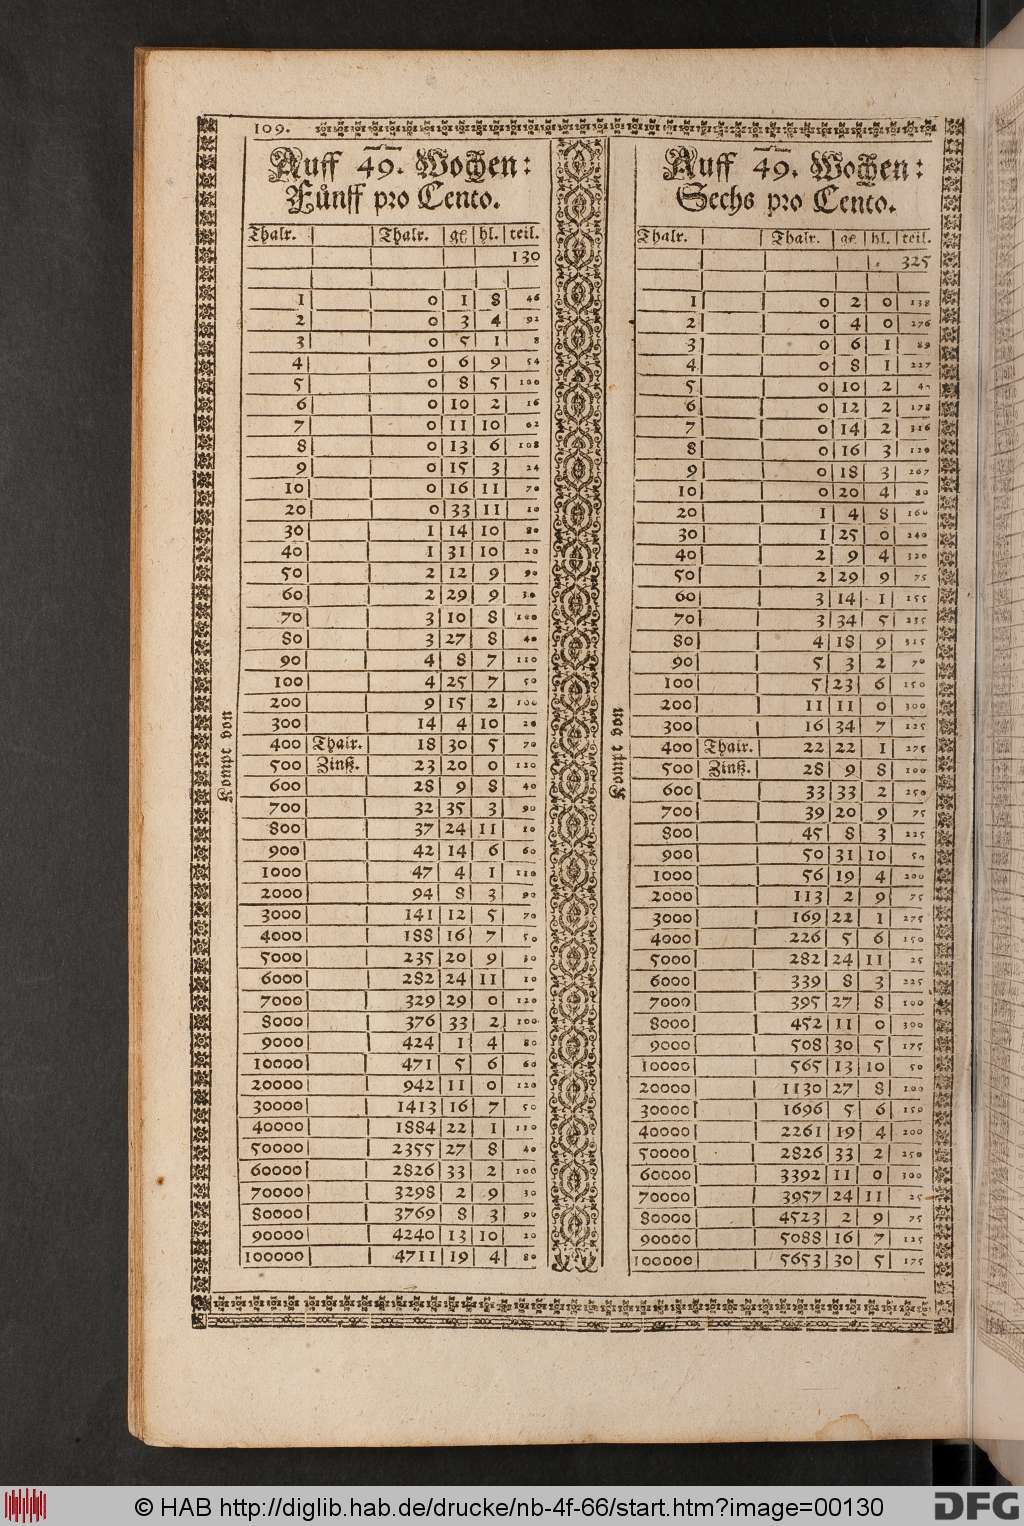 109.
Auff 49. Wochen:
Fünff pro Cento.
Thalr. Thalr. gℓ hl. teil.
130
1 0 1 8 46
2 0 3 4 92
3 0 5 1 8
4 0 6 9 54
5 0 8 5 100
6 0 10 2 16
7 0 11 10 62
8 0 13 6 108
9 0 15 3 24
10 0 16 11 70
20 0 33 11 10
30 1 14 10 80
40 1 31 10 20
50 2 12 9 90
60 2 29 9 30
70 3 10 8 100
80 3 27 8 40
90 4 8 7 110
100 4 25 7 50
200 9 15 2 100
300 14 4 10 20
400 Thalr. 18 30 5 70
500 Zinß. 23 20 0 120
600 28 9 8 40
700 32 35 3 90
800 37 24 11 10
900 42 14 6 60
1000 47 4 1 110
2000 94 8 3 90
3000 141 12 5 70
4000 188 16 7 50
5000 235 20 9 30
6000 282 24 11 10
7000 329 29 0 120
8000 376 33 2 100
9000 424 1 4 80
10000 471 5 6 60
20000 942 11 0 120
30000 1413 16 7 50
40000 1884 22 1 110
50000 2355 27 8 40
60000 2826 33 2 100
70000 3298 2 9 30
80000 3769 8 3 90
90000 4240 13 10 20
100000 4711 19 4 80
Kompt von
Auff 49. Wochen:
Sechs pro Cento.
Thalr. Thalr. gℓ hl. teil.
325
1 0 2 0 138
2 0 4 0 276
3 0 6 1 89
4 0 8 1 227
5 0 10 2 40
6 0 12 2 178
7 0 14 2 316
8 0 16 3 129
9 0 18 3 267
10 0 20 4 80
20 1 4 8 160
30 1 25 0 240
40 2 9 4 320
50 2 29 9 75
60 3 14 1 155
70 3 34 5 235
80 4 18 9 315
90 5 3 2 70
100 5 23 6 150
200 11 11 0 300
300 16 34 7 125
400 Thalr. 22 22 1 275
500 Zinß. 28 9 8 100
600 33 33 2 250
700 39 20 9 75
800 45 8 3 225
900 50 31 10 50
1000 56 19 4 200
2000 113 2 9 75
3000 169 22 1 275
4000 226 5 6 150
5000 282 24 11 25
6000 339 8 3 225
7000 395 27 8 100
8000 452 11 0 300
9000 508 30 5 175
10000 565 13 10 50
20000 1130 27 8 100
30000 1696 5 6 150
40000 2261 19 4 200
50000 2826 33 2 250
60000 3392 11 0 300
70000 3957 24 11 25
80000 4523 2 9 75
90000 5088 16 7 125
100000 5653 30 5 175
Kompt von
© HAB http://diglib.hab.de/drucke/nb-4f-66/start.htm?image=00130
DFG